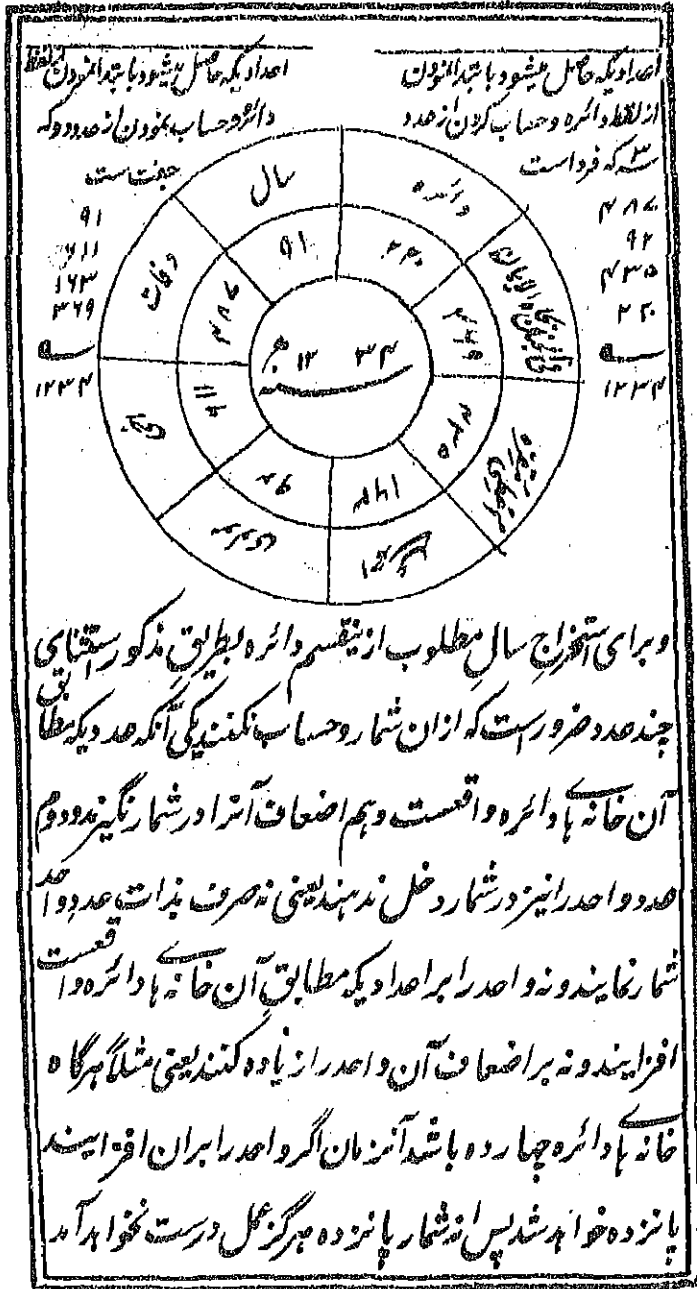 اعدادیکه حاصل میشود با بتدا نمودن
از لفظ دائره و حساب کردن از عدد
۳ که فرد است
۴۸۷
۹۲
۴۳۵
۲۲۰
۱۲۳۴
اعدادیکه حاصل میشود با بتدا نمودن
دائره و حساب نمودن از عدد دو که
جفت ست
۹۱
۶۱۱
۱۶۳
۳۶۹
۱۲۳۴
سال
دائره
وفات
۹۱
۲۲۰
۳۶۹
۴۳۵
۱۶۳
۹۲
۶۱۱
۴۸۷
۱۲ ۳۴
و برای استخراج سال مطلوب از ینقسم دائره بطریق مذکور استثنای
چند عدد ضرورست که ازان شمار و حساب نکنند یکی آنکه عددیکه مطابق
آن خانه های دائره واقعست و هم اضعاف آنرا در شمار نگیرند و دوم
عدد واحد را نیز در شمار دخل ندهند یعنی نه صرف بذات عدد واحد
شمار نمایند و نه واحد را بر اعدادیکه مطابق آن خانه های دائره واقعست
افزایند و نه بر اضعاف آن واحد را زیاده کنند یعنی مثلاً هرگاه
خانه های دائره چهارده باشد آنزمان اگر واحد را بران افزایند
پانزده خواهد شد پس از شمار پانزده هرگز عمل درست نخواهد آمد